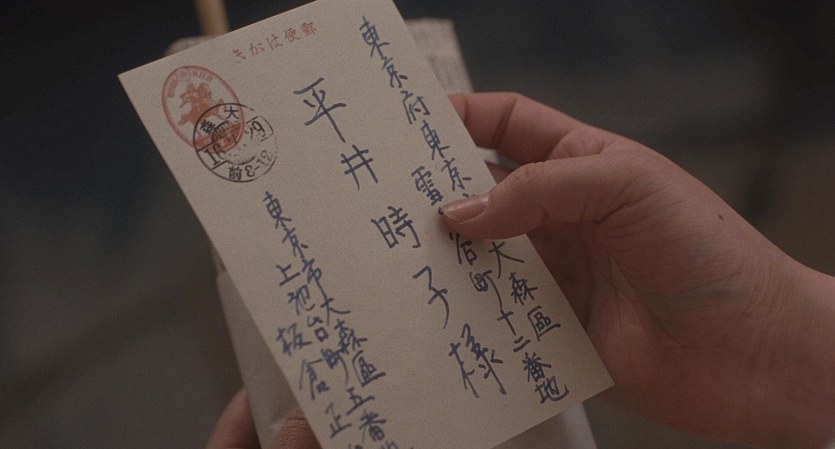 郵便はがき
東京府東京大森區
雪谷町十二番地
平井時子様
大森
前8-12
東京市大森區五番
上池台町
板倉正